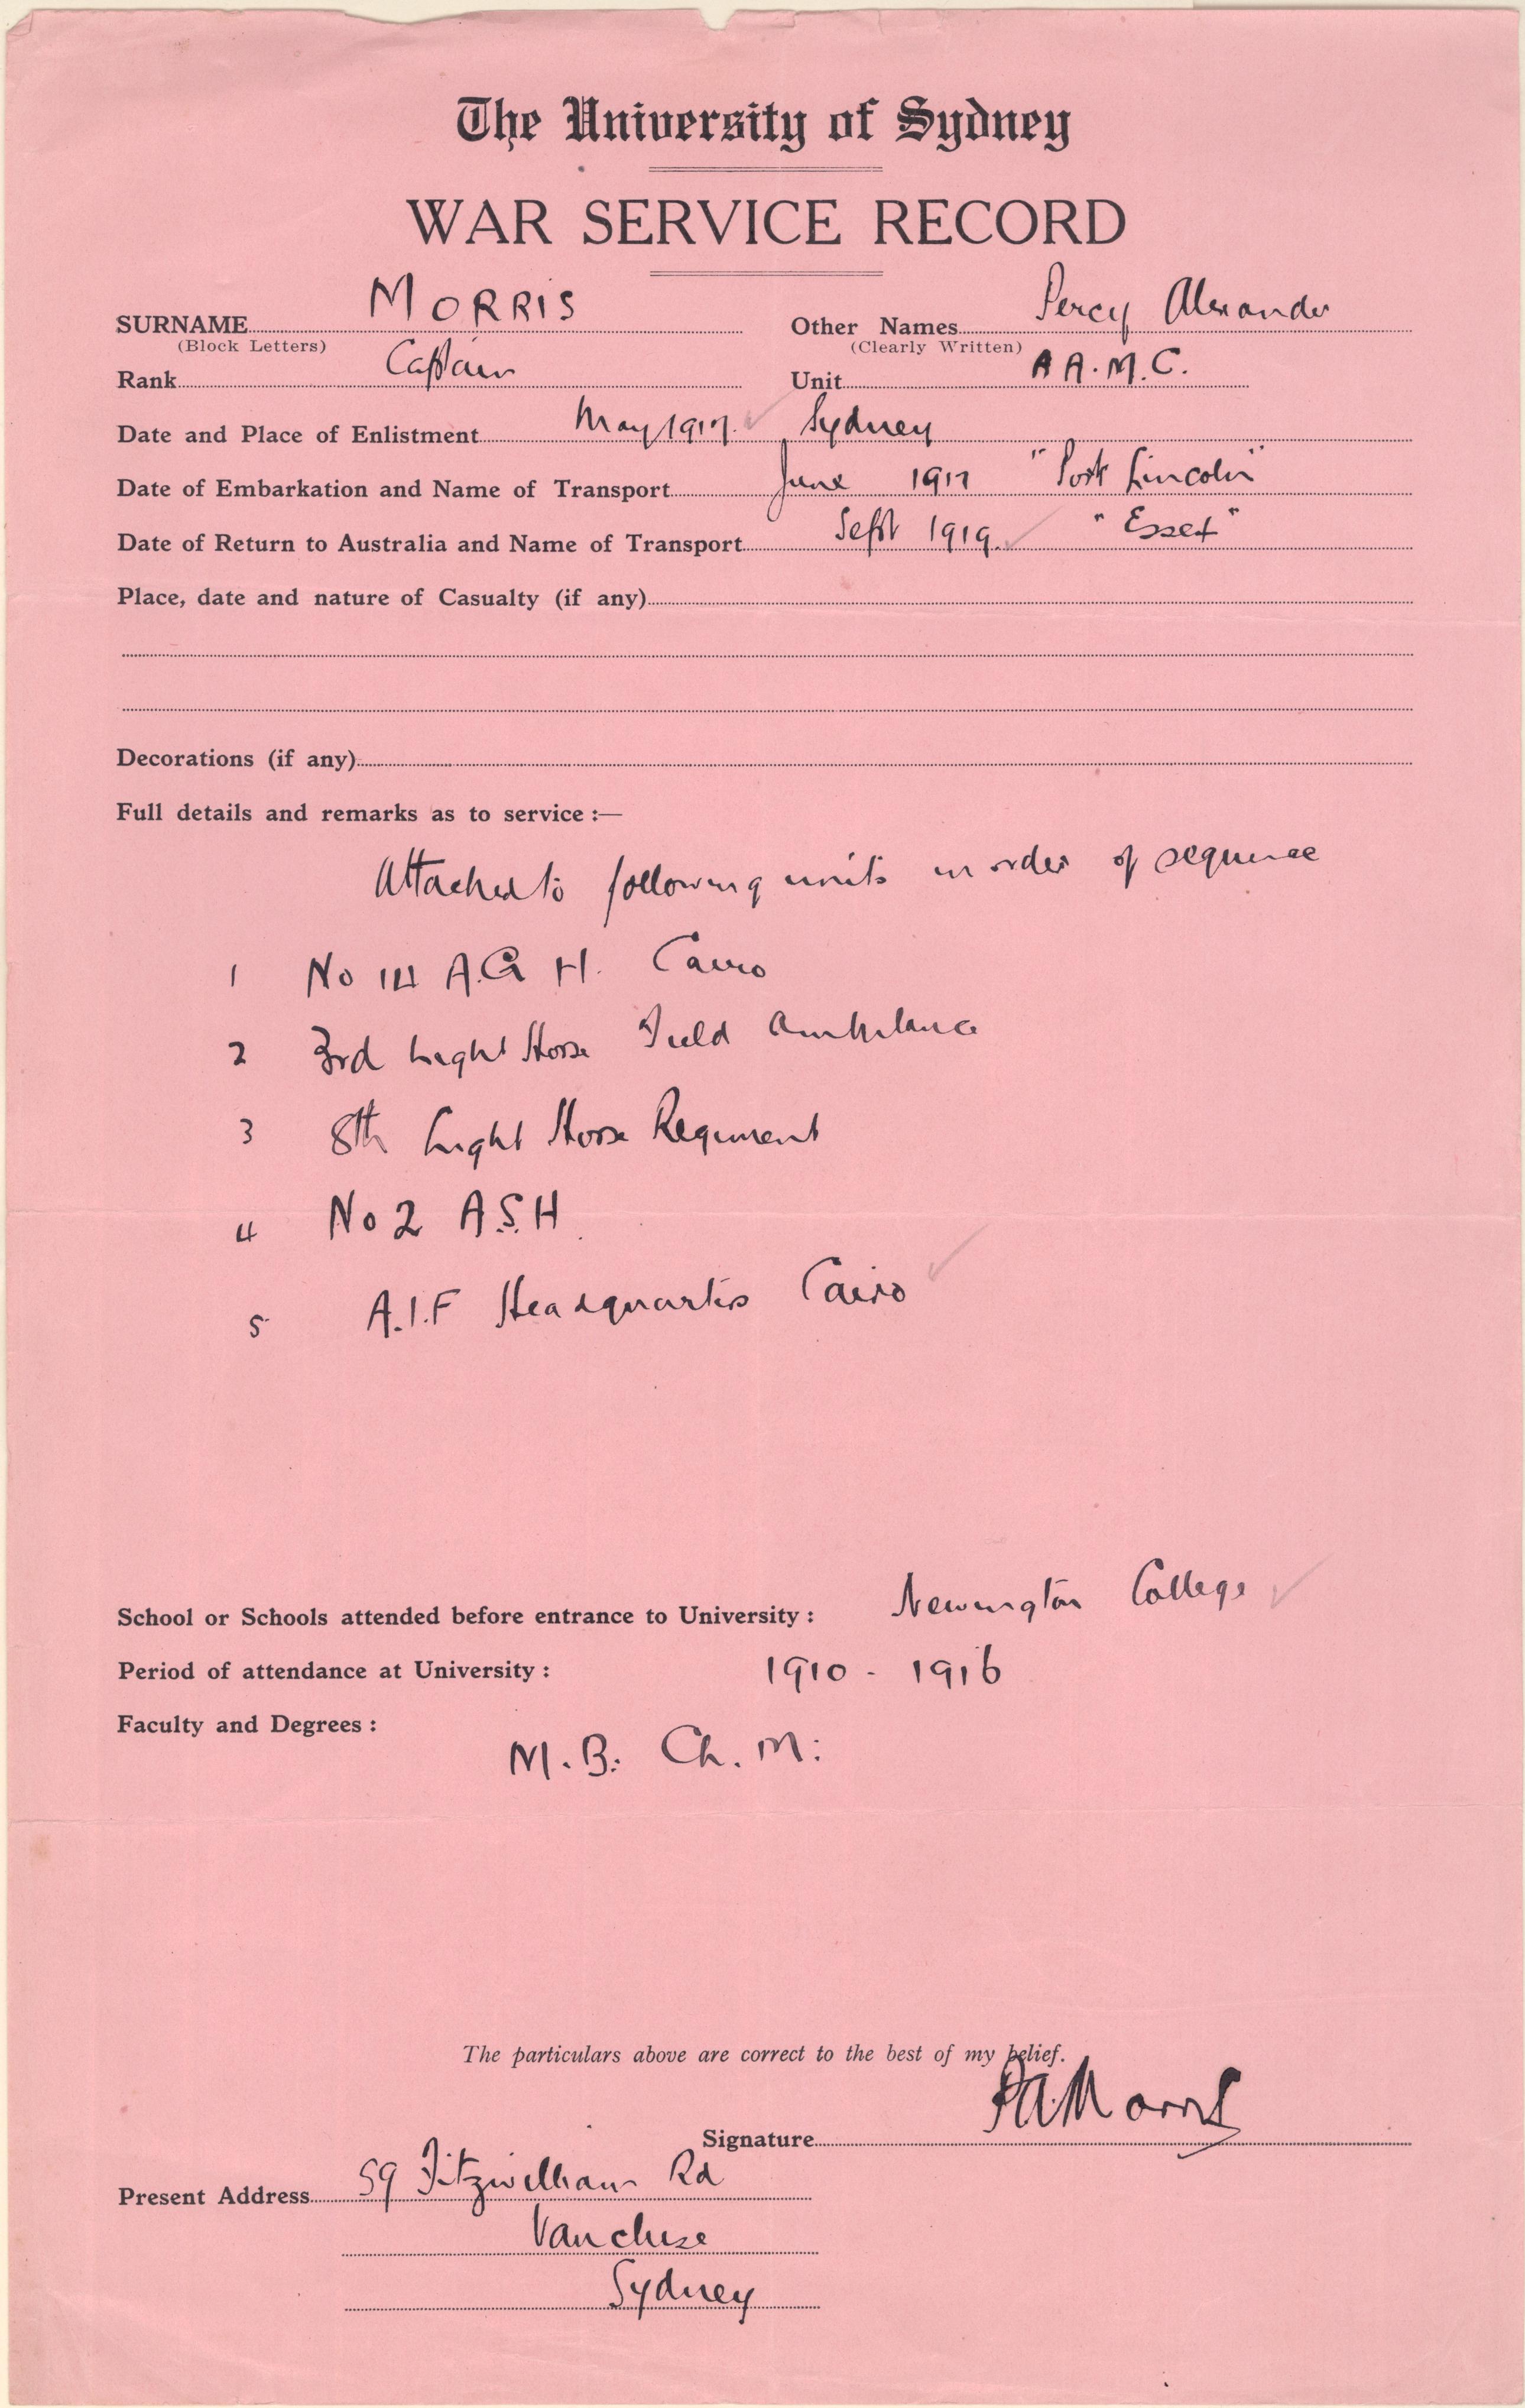 The University of Sydney
WAR SERVICE RECORD
SURNAME MORRIS Other Names Percy Alexander
(Block Letters) (Clearly Written)
Rank Captain Unit A A.M.C.
Date and Place of Enlistment May 1917. Sydney
Date of Embarkation and Name of Transport June 1917 "Port Lincoln"
Date of Return to Australia and Name of Transport Sept 1919. "Essex"
Place, date and nature of Casualty (if any)
Decorations (if any)
Full details and remarks as to service :—
Attached to following units in order of sequence
1 No 14 A.G H. Cairo
2 3rd Light Horse Field Ambulance
3 8th Light Horse Regiment
4 No 2 A.S.H.
5 A.I.F Headquarters Cairo
School or Schools attended before entrance to University : Newington College
Period of attendance at University : 1910 - 1916
Faculty and Degrees :
M.B. Ch. M.
The particulars above are correct to the best of my belief.
Signature PAMorris
Present Address 59 Fitzwilliam Rd
Vaucluse
Sydney